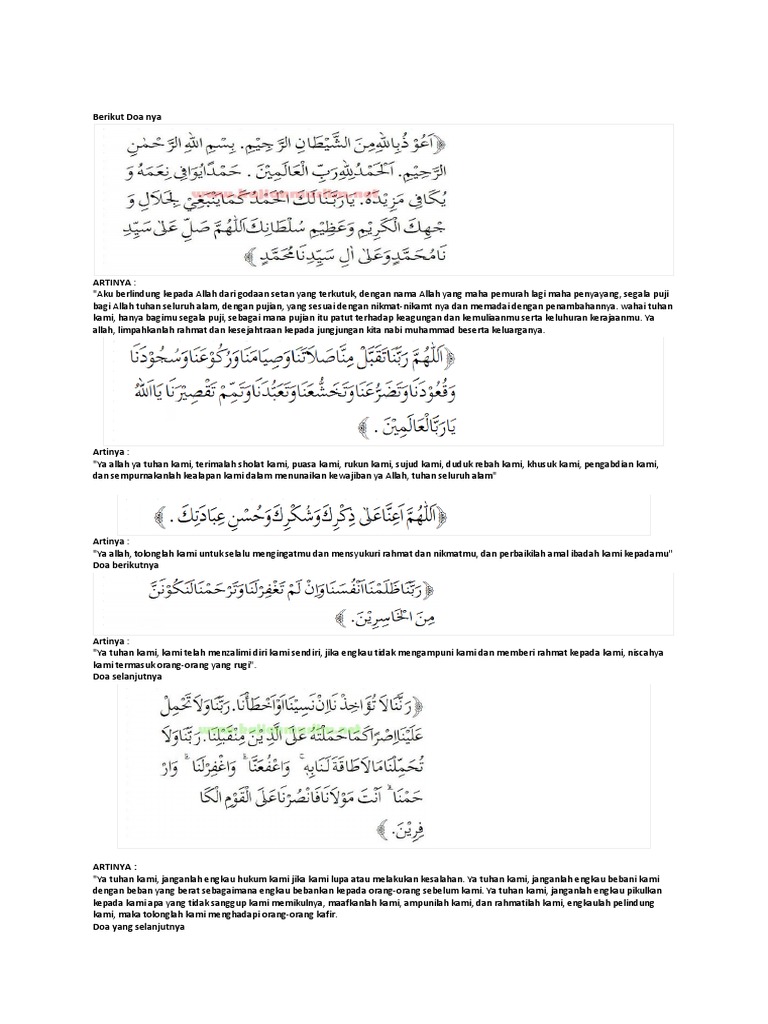 Berikut Doa nya
﴿اَعُوْذُبِاللهِ مِنَ الشَّيْطَانِ الرَّجِيْمِ. بِسْمِ اللهِ الرَّحْمٰنِ
الرَّحِيْمِ. اَلْحَمْدُ لِلهِ رَبِّ الْعَالَمِيْنَ . حَمْدًا يُوَافِى نِعَمَهُ وَ
يُكَافِى مَزِيْدَهُ. يَارَبَّنَا لَكَ الْحَمْدُ كَمَا يَنْبَغِيْ لِجَلَالِ وَ
جْهِكَ الْكَرِيْمِ وَعَظِيْمِ سُلْطَانِكَ اَللّٰهُمَّ صَلِّ عَلىٰ سَيِّدِ
نَا مُحَمَّدٍ وَعَلىٰ اٰلِ سَيِّدِنَا مُحَمَّدٍ ﴾
ARTINYA :
"Aku berlindung kepada Allah dari godaan setan yang terkutuk, dengan nama Allah yang maha pemurah lagi maha penyayang, segala puji
bagi Allah tuhan seluruh alam, dengan pujian, yang sesuai dengan nikmat-nikamt nya dan memadai dengan penambahannya. wahai tuhan
kami, hanya bagimu segala puji, sebagai mana pujian itu patut terhadap keagungan dan kemuliaanmu serta keluhuran kerajaanmu. Ya
allah, limpahkanlah rahmat dan kesejahtraan kepada jungjungan kita nabi muhammad beserta keluarganya.
﴿اَللّٰهُمَّ رَبَّنَا تَقَبَّلْ مِنَّا صَلَاتَنَا وَصِيَامَنَا وَرُكُوْعَنَا وَسُجُوْدَنَا
وَقُعُوْدَنَا وَتَضَرُّعَنَا وَتَخَشُّعَنَا وَتَعَبُّدَنَا وَتَمِّمْ تَقْصِيْرَنَا يَا اَللهُ
يَارَبَّ الْعَالَمِيْنَ . ﴾
Artinya :
"Ya allah ya tuhan kami, terimalah sholat kami, puasa kami, rukun kami, sujud kami, duduk rebah kami, khusuk kami, pengabdian kami,
dan sempurnakanlah kealapan kami dalam menunaikan kewajiban ya Allah, tuhan seluruh alam"
﴿اَللّٰهُمَّ اَعِنَّا عَلىٰ ذِكْرِكَ وَشُكْرِكَ وَحُسْنِ عِبَادَتِكَ . ﴾
Artinya :
"Ya allah, tolonglah kami untuk selalu mengingatmu dan mensyukuri rahmat dan nikmatmu, dan perbaikilah amal ibadah kami kepadamu"
Doa berikutnya
﴿رَبَّنَا ظَلَمْنَا اَنْفُسَنَا وَاِنْ لَمْ تَغْفِرْ لَنَا وَتَرْحَمْنَا لَنَكُوْنَنَّ
مِنَ الْخَاسِرِيْنَ. ﴾
Artinya :
"Ya tuhan kami, kami telah menzalimi diri kami sendiri, jika engkau tidak mengampuni kami dan memberi rahmat kepada kami, niscahya
kami termasuk orang-orang yang rugi".
Doa selanjutnya
﴿رَبَّنَا لَا تُؤَاخِذْ نَا اِنْ نَسِيْنَا اَوْ اَخْطَأْنَا. رَبَّنَا وَلَا تَحْمِلْ
عَلَيْنَا اِصْرًا كَمَا حَمَلْتَهُ عَلَى الَّذِيْنَ مِنْ قَبْلِنَا. رَبَّنَا وَلَا
تُحَمِّلْنَا مَالَا طَاقَةَ لَنَا بِهِ ۚ وَاعْفُ عَنَّا ۗ وَاغْفِرْلَنَا ۗ وَارْ
حَمْنَا ۗ اَنْتَ مَوْلَانَا فَانْصُرْنَا عَلَى الْقَوْمِ الْكَا
فِرِيْنَ. ﴾
ARTINYA :
"Ya tuhan kami, janganlah engkau hukum kami jika kami lupa atau melakukan kesalahan. Ya tuhan kami, janganlah engkau bebani kami
dengan beban yang berat sebagaimana engkau bebankan kepada orang-orang sebelum kami. Ya tuhan kami, janganlah engkau pikulkan
kepada kami apa yang tidak sanggup kami memikulnya, maafkanlah kami, ampunilah kami, dan rahmatilah kami, engkaulah pelindung
kami, maka tolonglah kami menghadapi orang-orang kafir.
Doa yang selanjutnya